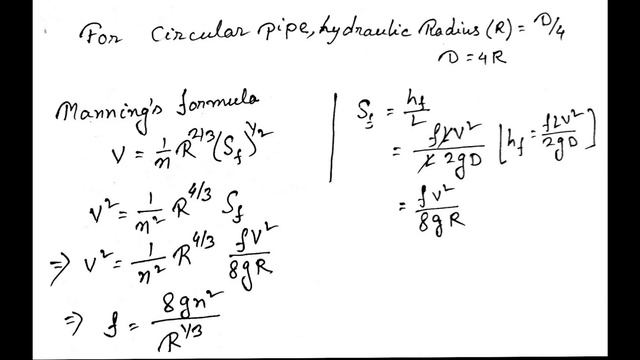 For Circular pipe, hydraulic Radius (R) = D/4
D = 4R
Manning's formula
V = 1/n R^2/3 (S_f)^1/2
V² = 1/n² R^4/3 S_f
⇒ V² = 1/n² R^4/3 fV²/8gR
⇒ f = 8gn²/R^1/3
S_f = h_f/L
= fLV²/L 2gD [h_f = fLV²/2gD]
= fV²/8gR